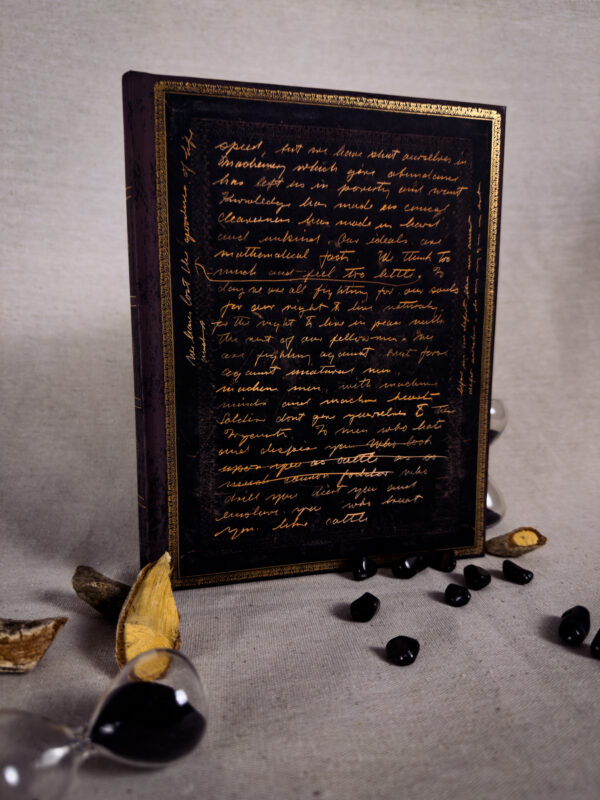 We have lost the goodness of life
speed, but we have shut ourselves in
Machinery which gives abundance
has left us in poverty and want
Knowledge has made us cynical
cleverness has made us hard
and unkind. Our ideals are
mathematical facts. We think too
much and feel too little. To
day we are all fighting for our souls
for our right to live naturally
for the right to live in peace with
the rest of our fellow men.
are fighting against
against unnatural men
machine men, with machine
minds and machine hearts
Soldiers dont give yourselves to the
Tyrants. To men who hate
and despise you who look
upon you as cattle or as
much cannon fodder who
drill you diet you and
enslave you who treat
you like cattle